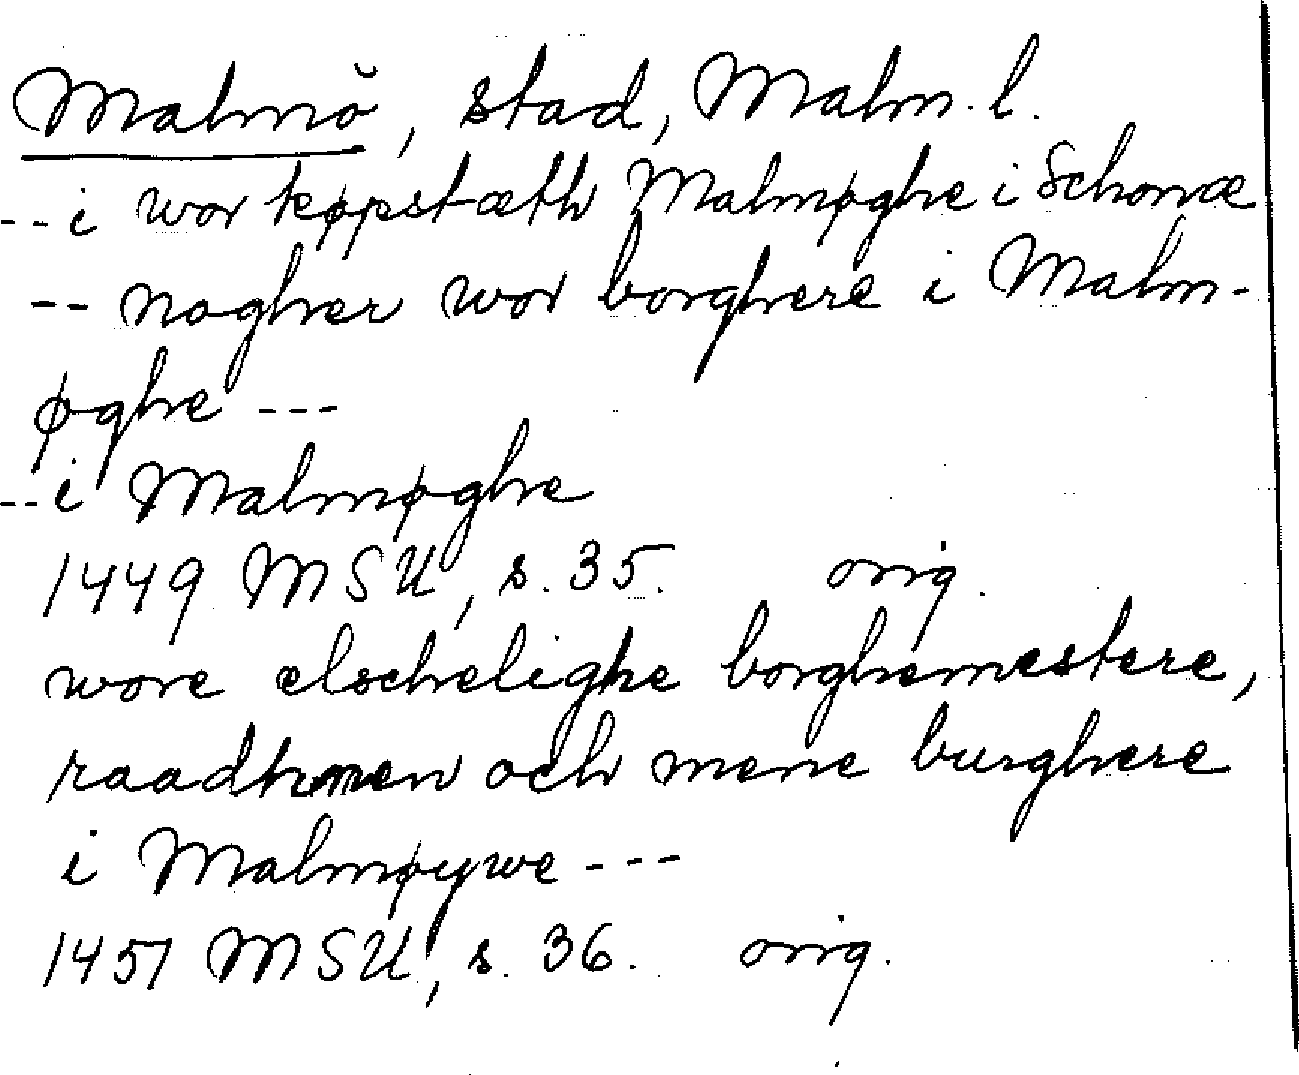 Malmö, stad, Malm. l.
-- i wor køpstæth Malmøghe i Schonæ
-- nogher wor borghere i Malm-
øghe ---
-- i Malmøghe
1449 MSU, s. 35. orig.
wore elschelighe borghemestere,
raadhmen och mene burghere
i Malmøywe ---
1451 MSU, s. 36. orig.